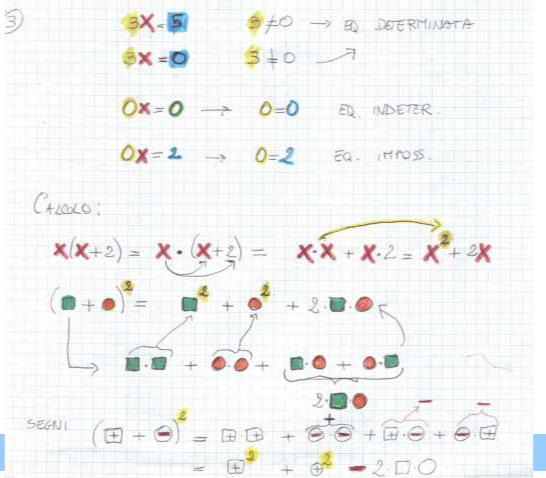 3
3x = 5 3 ≠ 0 → EQ DETERMINATA
3x = 0 3 ≠ 0
0x = 0 → 0 = 0 EQ. INDETER.
0x = 2 → 0 = 2 EQ. IMPOSS.
CALCOLO:
x(x+2) = x · (x+2) = x·x + x·2 = x² + 2x
(■ + ●)² = ■² + ●² + 2·■·●
■·■ + ●·● + ■·● + ●·■
2·■·●
+ − −
SEGNI (⊞ + ⊖)² = ⊞·⊞ + ⊖·⊖ + ⊞·⊖ + ⊖·⊞
= ⊞² + ⊕² − 2·□·○